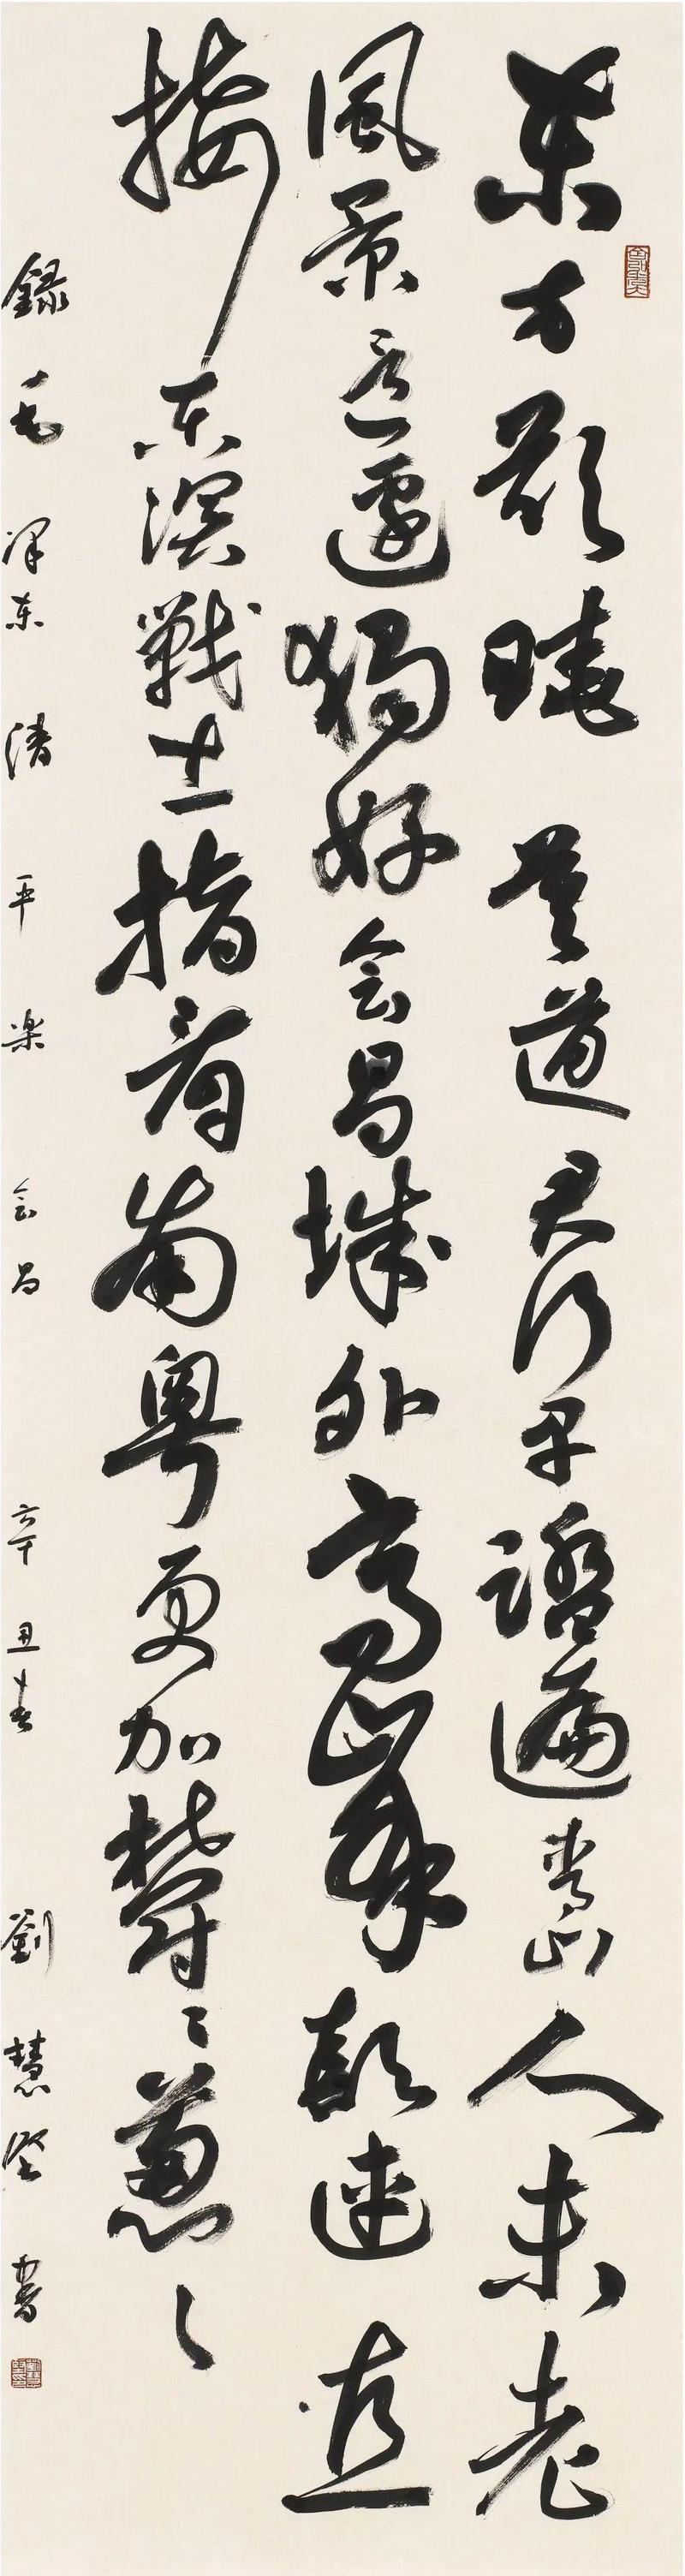 東方欲曉莫道君行早踏遍青山人未老
風景這邊獨好会昌城外高峯顛連直
接東溟戰士指看南粵更加欝〻蔥〻
録毛澤東清平楽会昌 辛丑春 劉慧書